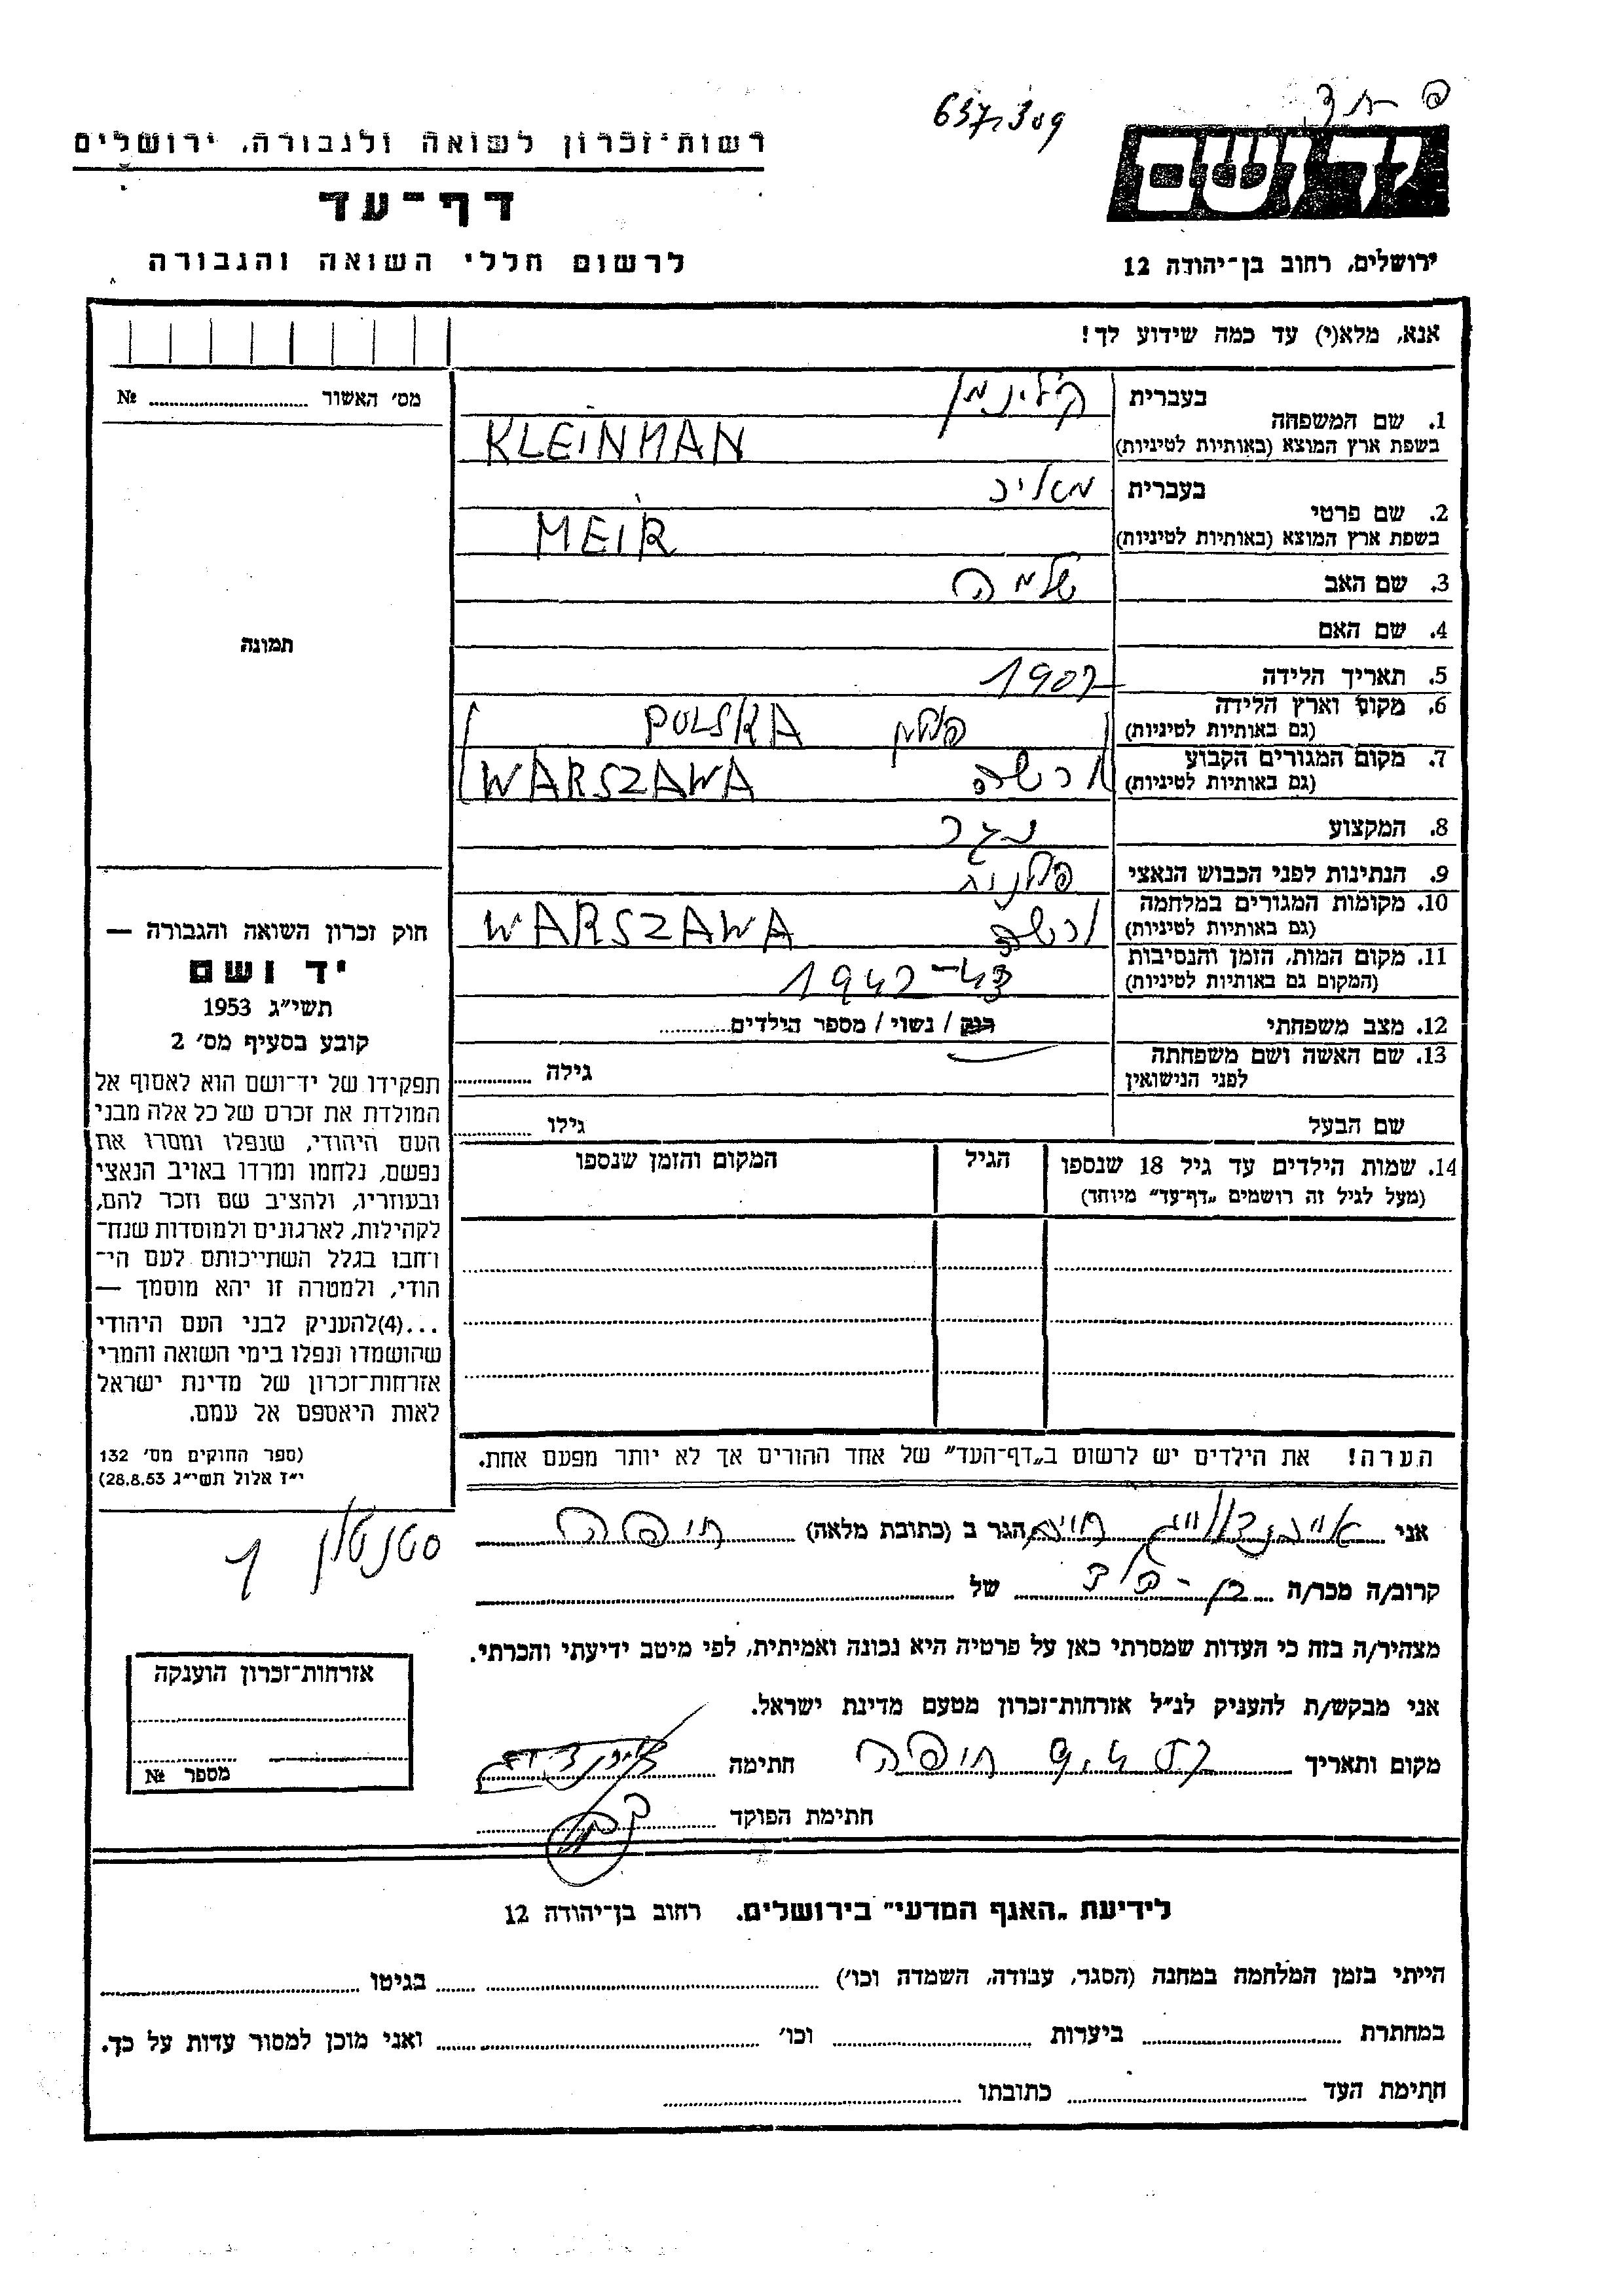 637,309
רשות־זכרון לשואה ולגבורה, ירושלים
דף־עד
לרשום חללי השואה והגבורה
יד ושם
ירושלים, רחוב בן־יהודה 12
אנא, מלא(י) עד כמה שידוע לך!
מס׳ האשור № 
1. שם המשפחה
בעברית קליינמן
בשפת ארץ המוצא (באותיות לטיניות) KLEINMAN
2. שם פרטי
בעברית מאיר
בשפת ארץ המוצא (באותיות לטיניות) MEIR
3. שם האב שלמה
4. שם האם
5. תאריך הלידה 1907
6. מקום וארץ הלידה
(גם באותיות לטיניות) פולין POLSKA
7. מקום המגורים הקבוע
(גם באותיות לטיניות) ורשה WARSZAWA
8. המקצוע נגר
9. הנתינות לפני הכבוש הנאצי פולנית
10. מקומות המגורים במלחמה
(גם באותיות לטיניות) ורשה WARSZAWA
11. מקום המות, הזמן והנסיבות
(המקום גם באותיות לטיניות) 1942-43
12. מצב משפחתי רוק / נשוי / מספר הילדים
13. שם האשה ושם משפחתה
לפני הנישואין גילה
שם הבעל גילו
14. שמות הילדים עד גיל 18 שנספו הגיל המקום והזמן שנספו
(מעל לגיל זה רושמים „דף־עד״ מיוחד)
הערה! את הילדים יש לרשום ב„דף־העד״ של אחד ההורים אך לא יותר מפעם אחת.
תמונה
חוק זכרון השואה והגבורה —
יד ושם
תשי״ג 1953
קובע בסעיף מס׳ 2
תפקידו של יד־ושם הוא לאסוף אל
המולדת את זכרם של כל אלה מבני
העם היהודי, שנפלו ומסרו את
נפשם, נלחמו ומרדו באויב הנאצי
ובעוזריו, ולהציב שם וזכר להם,
לקהילות, לארגונים ולמוסדות שנח־
רחבו בגלל השתייכותם לעם הי־
הודי, ולמטרה זו יהא מוסמך —
...(4)להעניק לבני העם היהודי
שהושמדו ונפלו בימי השואה והמרי
אזרחות־זכרון של מדינת ישראל
לאות היאספם אל עמם.
(ספר החוקים מס׳ 132
י״ז אלול תשי״ג 28.8.53)
אני הגר ב (כתובת מלאה) חיפה
סטנטון 1
קרוב/ה מכר/ה בן-דוד של
מצהיר/ה בזה כי העדות שמסרתי כאן על פרטיה היא נכונה ואמיתית, לפי מיטב ידיעתי והכרתי.
אני מבקש/ת להעניק לנ״ל אזרחות־זכרון מטעם מדינת ישראל.
מקום ותאריך חיפה חתימה
חתימת הפוקד
אזרחות־זכרון הוענקה
מספר №
לידיעת „האגף המדעי״ בירושלים. רחוב בן־יהודה 12
הייתי בזמן המלחמה במחנה (הסגר, עבודה, השמדה וכו׳) בגיטו
במחתרת ביערות וכו׳ ואני מוכן למסור עדות על כך.
חתימת העד כתובתו